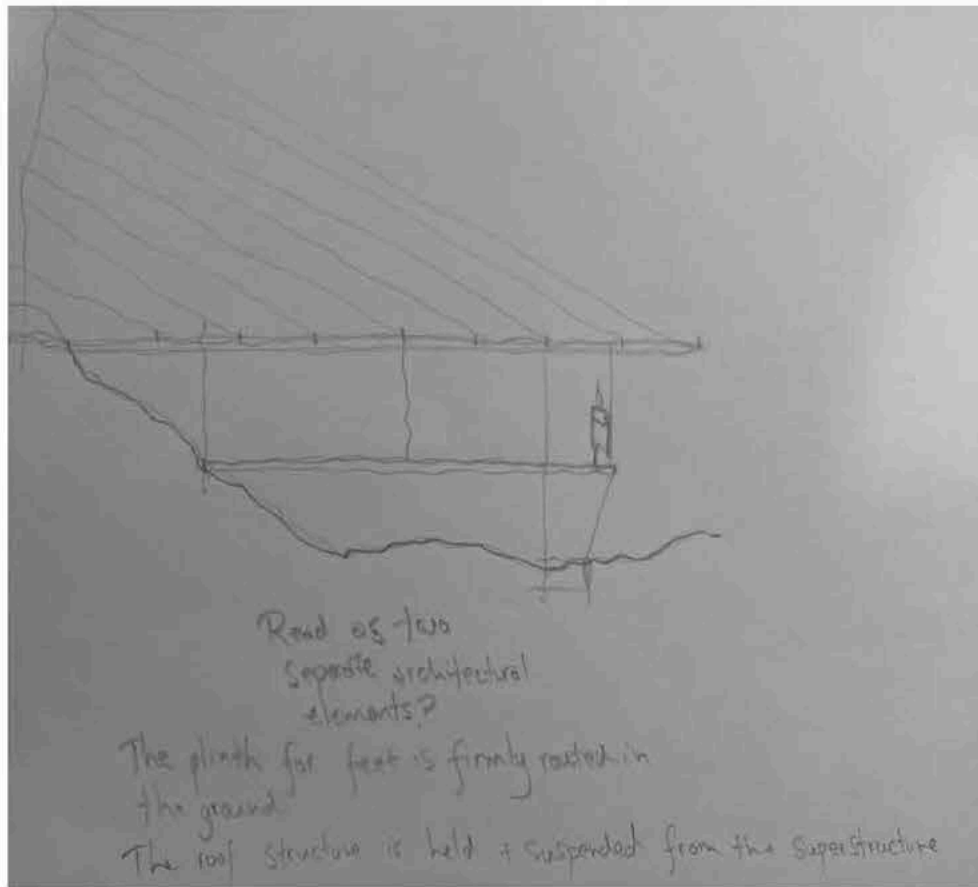 Read as two
separate architectural
elements?
The plinth for feet is firmly rooted in
the ground
The roof structure is held + suspended from the superstructure